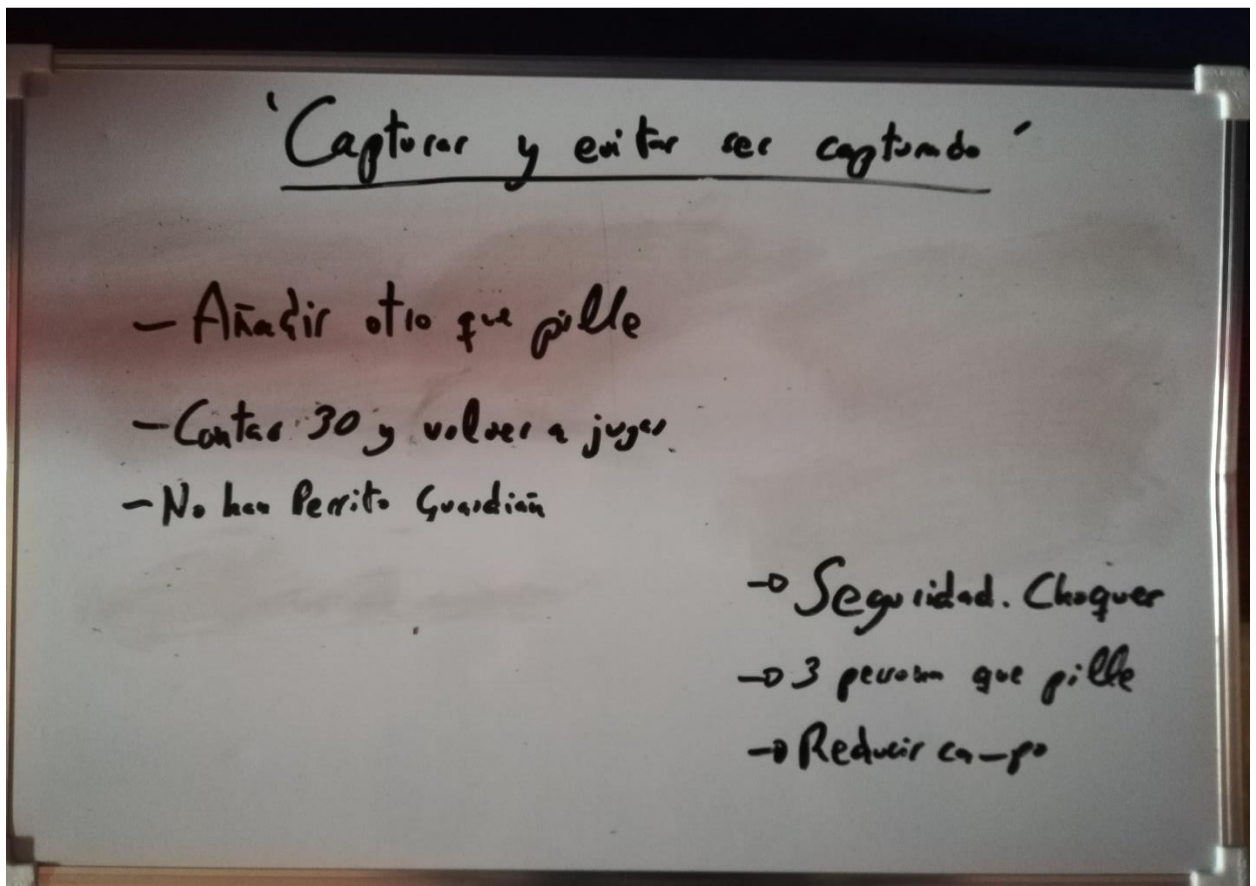 'Capturar y evitar ser capturado'
- Añadir otro que pille
- Contar 30 y volver a jugar.
- No han Perrito Guardián
→ Seguridad. Choques
→ 3 personas que pille
→ Reducir campo